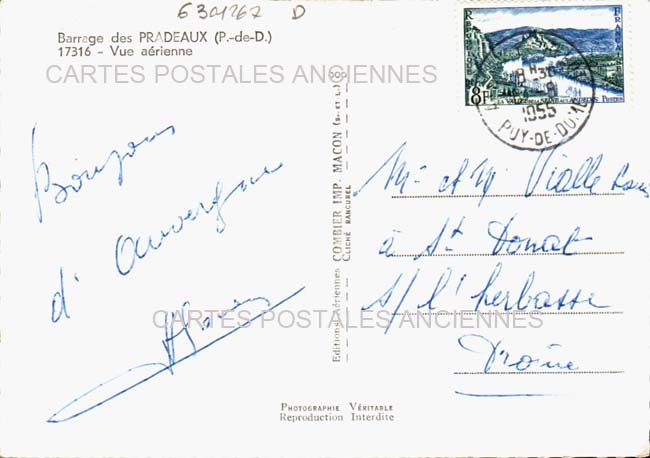 634267 D
Barrage des PRADEAUX (P.-de-D.)
17316 - Vue aérienne
CARTES POSTALES ANCIENNES
REPUBLIQUE FRANCAISE
8F
LA VALLEE DE LA SEINE AUX ANDELYS POSTES
1955
PUY-DE-DOME
Bonjour
d'Auvergne
Editions aériennes COMBIER IMP. MACON (S.-ET-L.)
CLICHÉ RANCUREL
Mr et Me Vialle Louis
à St Donat
s/ l'herbasse
Drôme
CARTES POSTALES ANCIENNES
PHOTOGRAPHIE VÉRITABLE
Reproduction Interdite